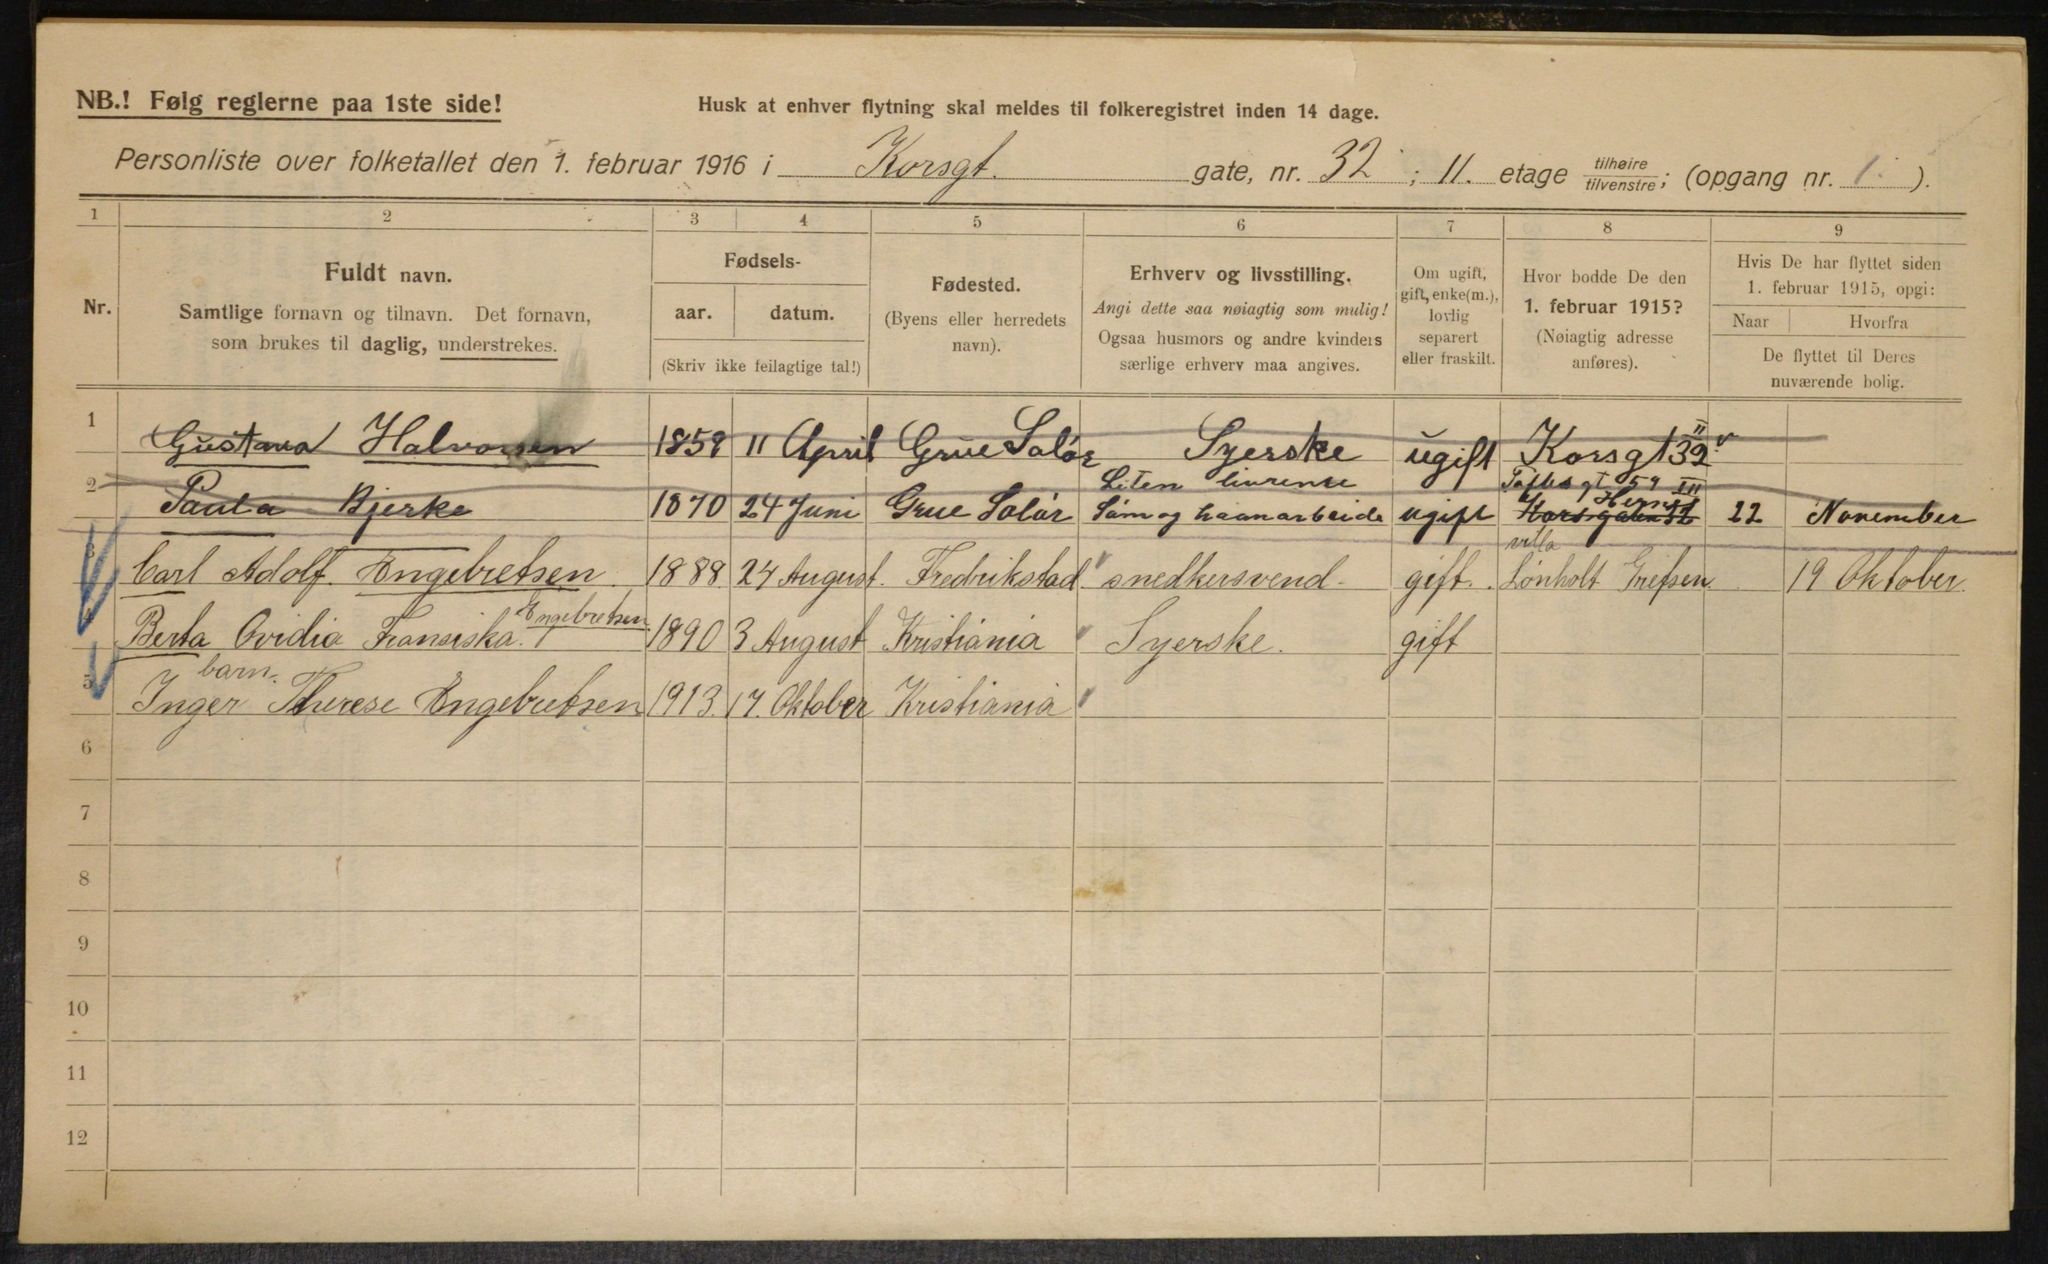 NB.! Følg reglerne paa 1ste side!
Husk at enhver flytning skal meldes til folkeregistret inden 14 dage.
Personliste over folketallet den 1. februar 1916 i Korsgt. gate, nr. 32 ; II. etage tilhøire/tilvenstre; (opgang nr. 1. ).
1 2 3 4 5 6 7 8 9
Nr.
Fuldt navn.
Samtlige fornavn og tilnavn. Det fornavn,
som brukes til daglig, understrekes.
Fødsels-
aar. datum.
(Skriv ikke feilagtige tal!)
Fødested.
(Byens eller herredets
navn).
Erhverv og livsstilling.
Angi dette saa nøiagtig som mulig!
Ogsaa husmors og andre kvinders
særlige erhverv maa angives.
Om ugift,
gift, enke(m.),
lovlig
separert
eller fraskilt.
Hvor bodde De den
1. februar 1915?
(Nøiagtig adresse
anføres).
Hvis De har flyttet siden
1. februar 1915, opgi:
Naar Hvorfra
De flyttet til Deres
nuværende bolig.
1 Gustava Halvorsen 1859 11 April Grue Solör Syerske ugift Korsgt 32 II v
Liten livrente Toftesgt 59 III
2 Paula Bjerke 1870 24 Juni Grue Solör Söm og haanarbeide ugift 22 November
villa
3 Carl Adolf Engebretsen. 1888 24 August. Fredrikstad snedkersvend. gift. Lönholt Grefsen. 19 Oktober.
4 Berta Ovidia Fransiska. Engebretsen 1890 3 August Kristiania Syerske. gift
barn.
5 Inger Therese Engebretsen 1913. 17. Oktober Kristiania
6
7
8
9
10
11
12